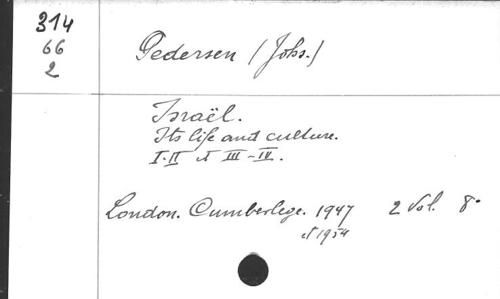 314
66
2
Pedersen (Johs.)
Israël.
Its life and culture.
I-II et III-IV.
London. Cumberlege. 1947 2 Vol. 8°
et 1954